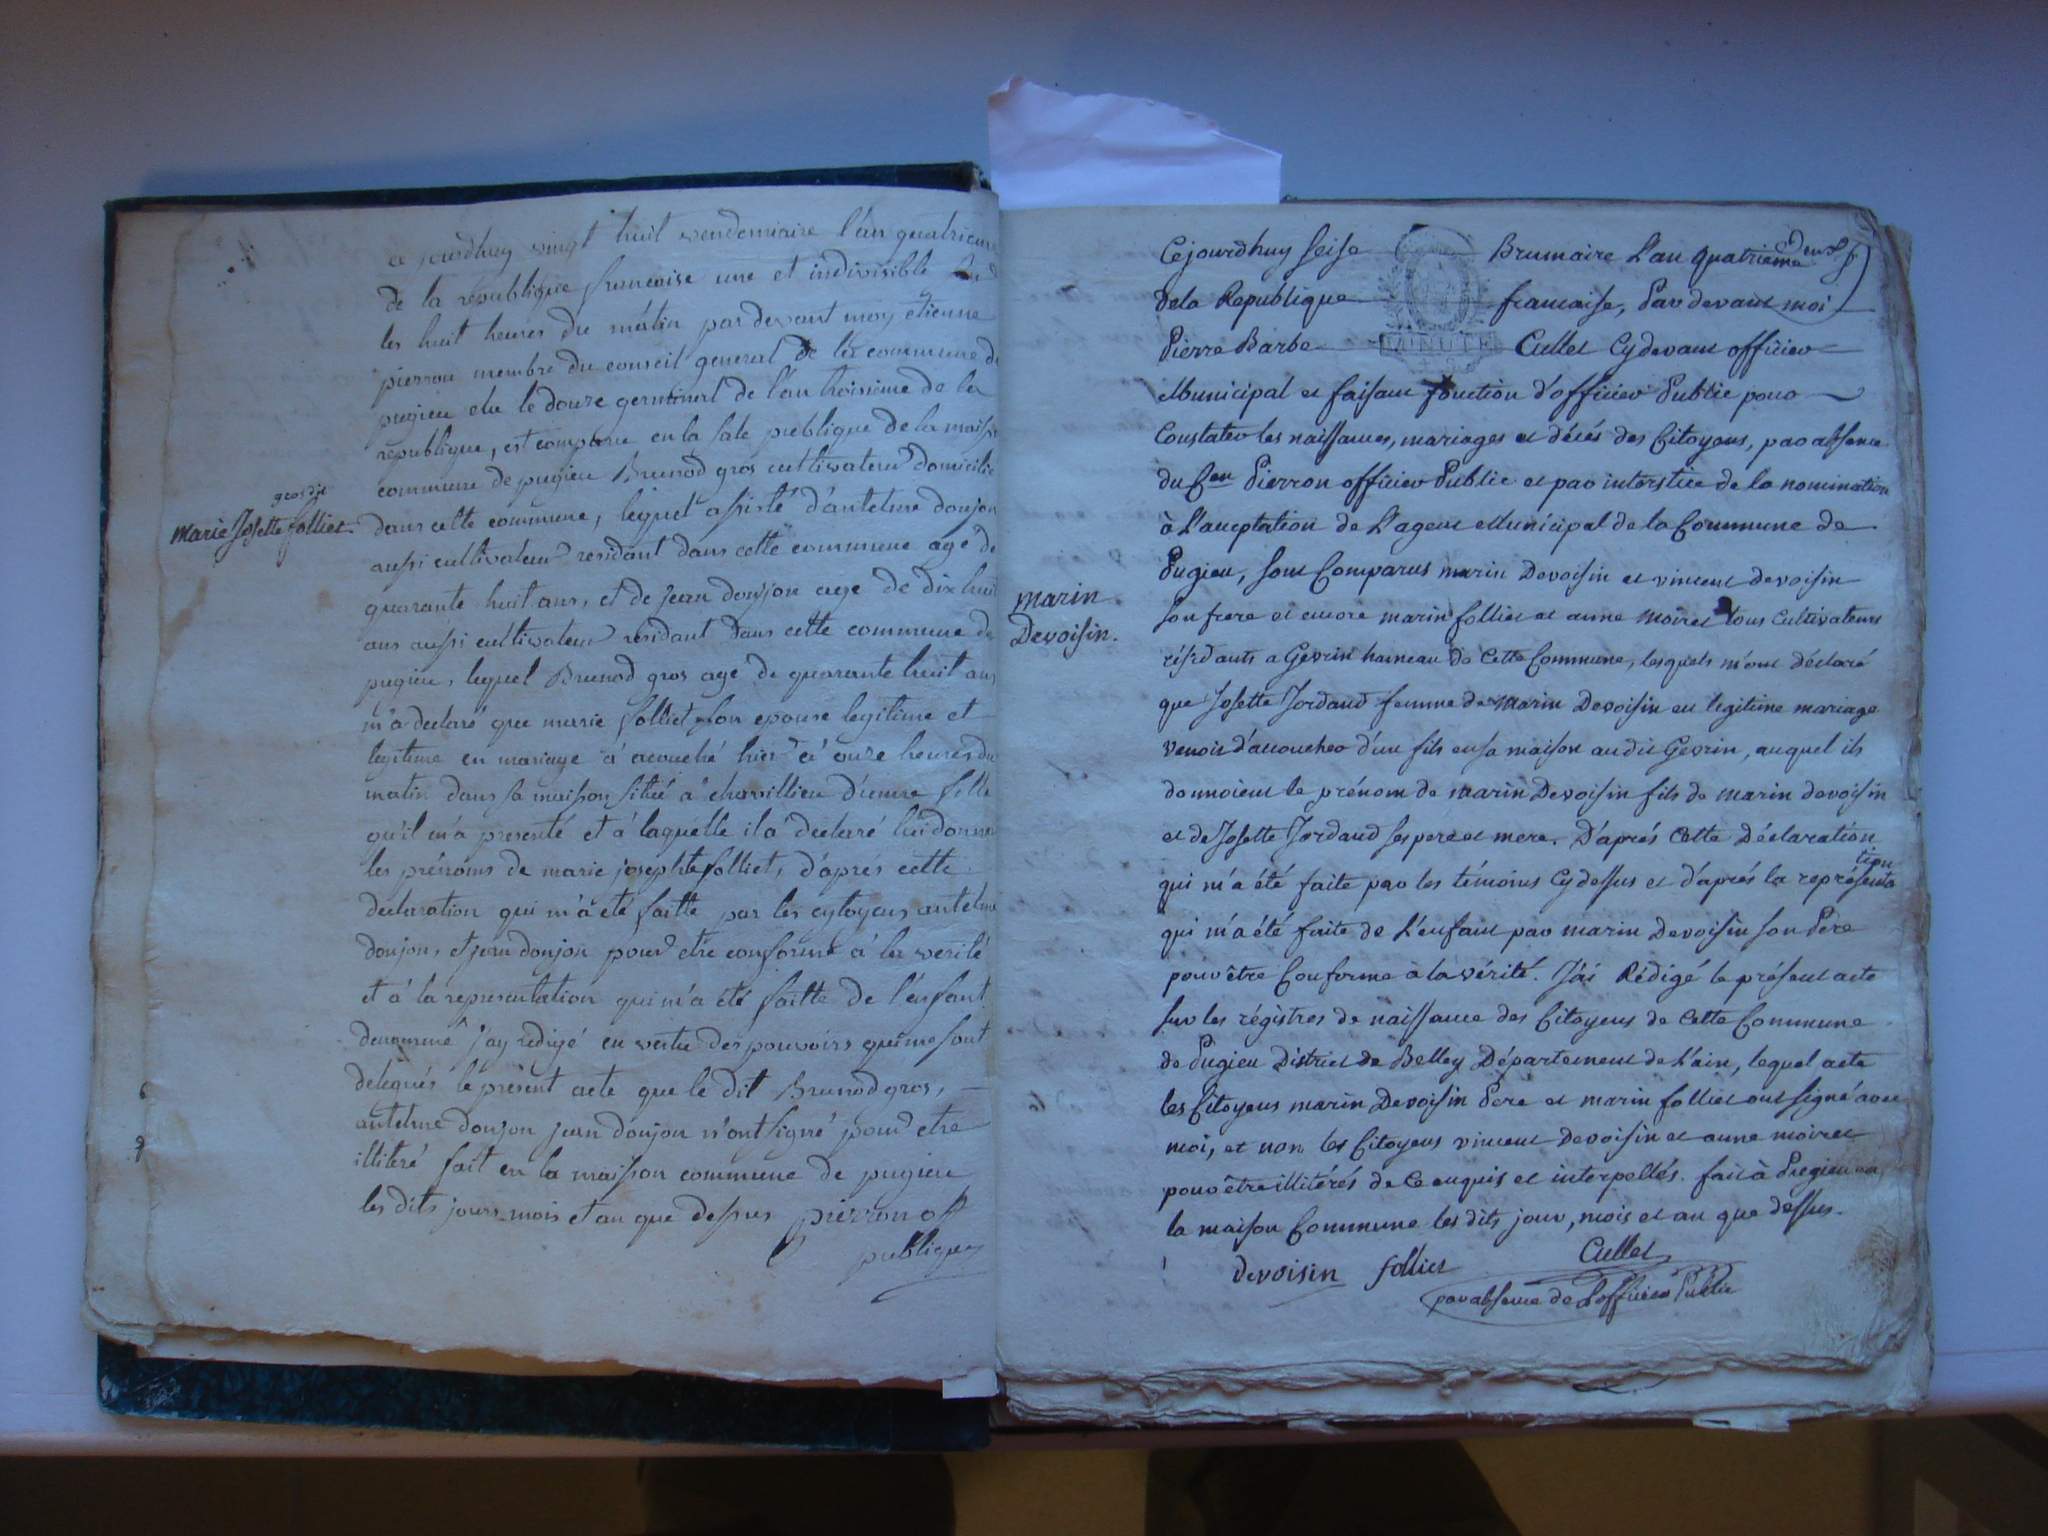 ce jourdhuy vingt huit vendemiaire l'an quatrieme
de la republique francaise une et indivisible
les huit heures du matin par devant moy etienne
pierron membre du conseil general de la commune de
pugieu elu le douze germinal de l'an troisieme de la
republique, est comparu en la sale publique de la maison
commune de pugieu Brunod gros cultivateur domicilié
gros dit
marie Josette folliet
dans cette commune, lequel assisté d'antelme doujon
aussi cultivateur residant dans cette commune agé de
quarante huit ans, et de jean doujon age de dix huit
ans aussi cultivateur residant dans cette commune de
pugieu, lequel Brunod gros age de quarante huit ans
m'a declaré que marie folliet son epouse legitime et
legitime en mariage à acouché hier à onze heures du
matin dans sa maison située à chavillieu d'eune fille
qu'il m'a presenté et à laquelle il a declaré lui donner
les prénoms de marie josephte folliet, d'aprés cette
declaration qui m'a été faitte par les cytoyens antelme
doujon, et jean doujon pour etre conforme à la verité
et à la representation qui m'a été faitte de l'enfant
denommé j'ay redigé en vertu des pouvoirs qui me sont
delegués le present acte que le dit Brunod gros,
antelme doujon jean doujon n'ont signé pour etre
illiteré fait en la maison commune de pugieu
les dits jours mois et an que dessus pierron off
publique
Cejourdhuy seise Brumaire L'an quatrieme
dela Republique francaise, Par devant moi
Pierre Barbe Cullet Cy devant officier
MINUTE
Municipal et faisant fonction d'officier Public pour
Constater les naissances, mariages et décés des Citoyens, par absence
du Cen Pierron officier Public et par interstice de la nomination
à L'acceptation de L'agent Municipal de la Commune de
Pugieu, sont Comparus marin Devoisin et vincent devoisin
marin
Devoisin.
son frere et encore marin folliet et anne moiret tous Cultivateurs
résidants a Gevrin hameau de Cette Commune, lesquels m'ont déclaré
que Josette Jordand femme de Marin Devoisin en legitime mariage
venoit d'accoucher d'un fils en sa maison audit Gevrin, auquel ils
donnoient le prénom de marin Devoisin fils de marin devoisin
et de Josette Jordand ses pere et mere. D'aprés Cette Déclaration
qui m'a été faite par les témoins Cy dessus et d'aprés la représenta
tion
qui m'a été faite de L'enfant par marin Devoisin son Pere
pour être Conforme à la vérité. J'ai Rédigé le présent acte
sur les régistres de naissance des Citoyens de Cette Commune
de Pugieu District de Belley Département de L'ain, lequel acte
les Citoyens marin Devoisin Pere et marin folliet ont signé avec
moi, et non les Citoyens vincent Devoisin et anne moiret
pour être illitérés de Ce enquis et interpellés. fait à Pugieu en
la maison Commune les dits jour, mois et an que dessus.
devoisin folliet Cullet
par absence de L'officier Public